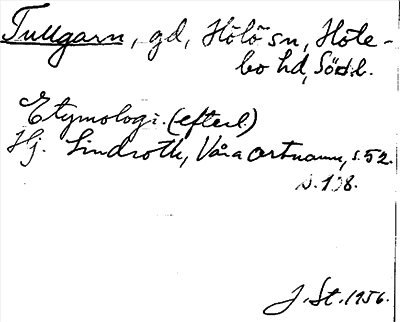 Tullgarn, gd, Hölö sn, Höle-
bo hd, Södl.
Etymologi. (efterl.)
Hj. Lindroth, Våra ortnamn, s. 52.
s. 138.
J. St. 1956.